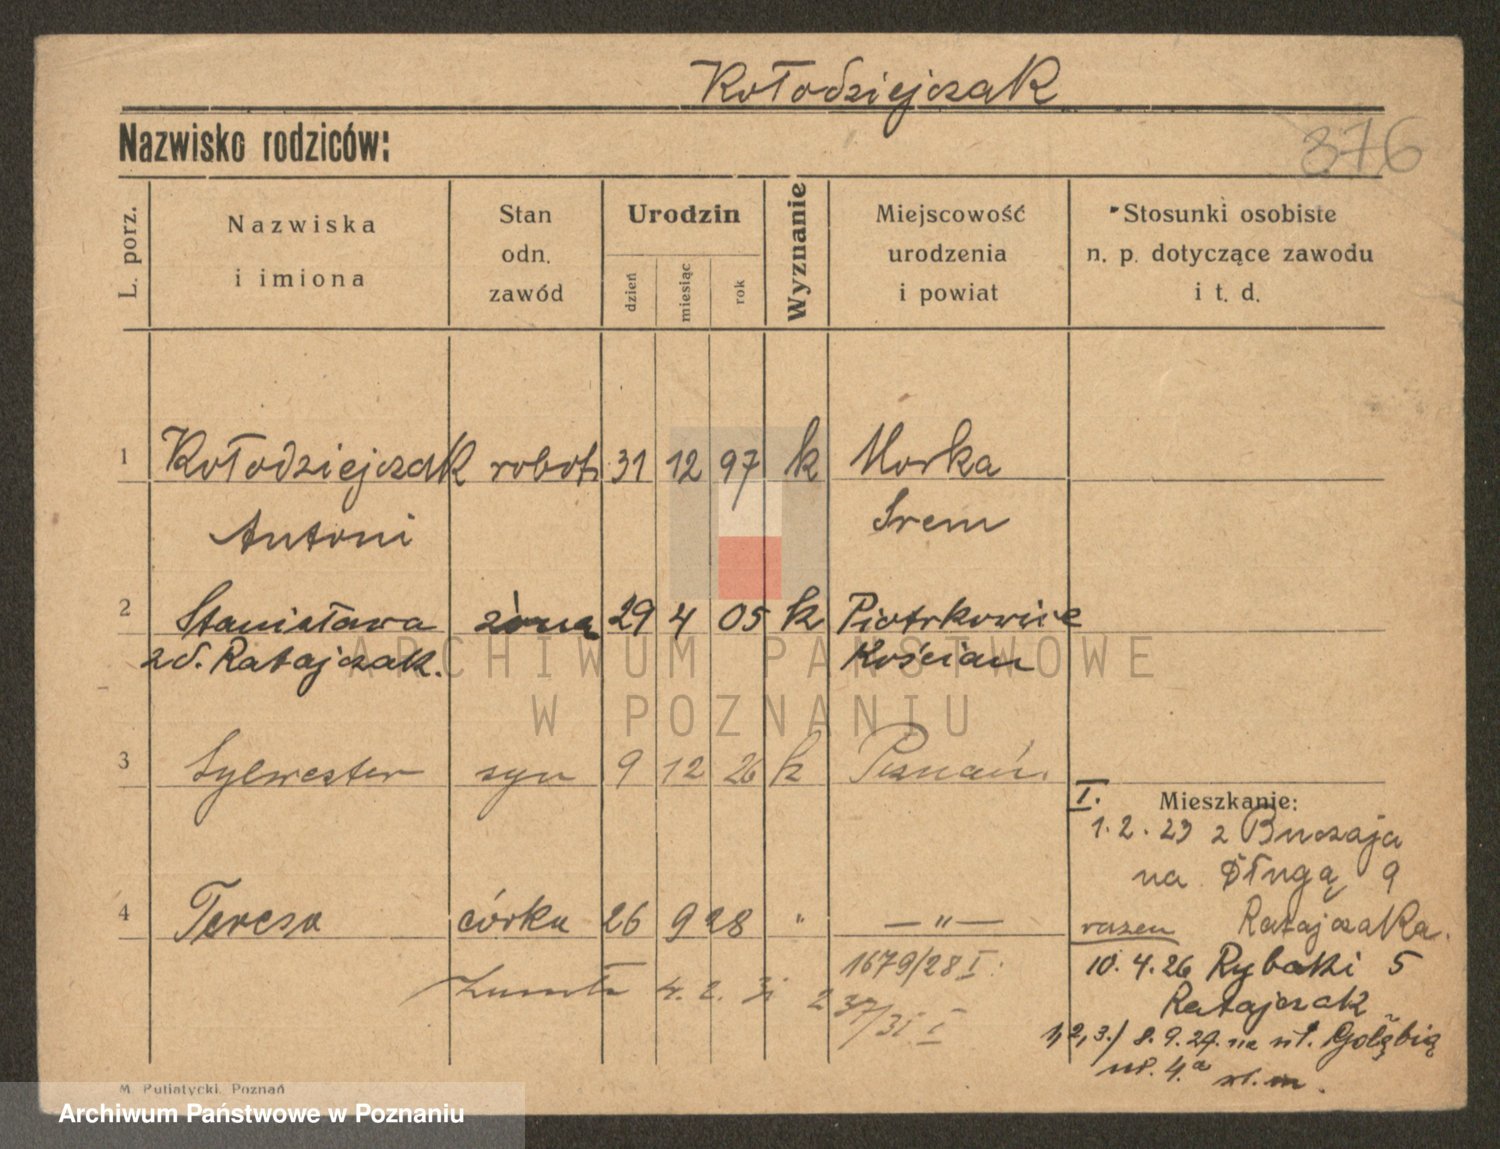 Kołodziejczak
Nazwisko rodziców:
376
L. porz.
Nazwiska
i imiona
Stan
odn.
zawód
Urodzin
dzień
miesiąc
rok
Wyznanie
Miejscowość
urodzenia
i powiat
Stosunki osobiste
n. p. dotyczące zawodu
i t. d.
1 Kołodziejczak robotn 31 12 97 k Morka
Antoni Śrem
2 Stanisława żona 29 4 05 k Piotrkowice
zd. Ratajczak. Kościan
ARCHIWUM PAŃSTWOWE
W POZNANIU
3 Sylwester syn 9 12 26 k Poznań.
I. Mieszkanie:
1.2.23 z Buczaja
na Długą 9
4 Teresa córka 26 9 28 " —"—
razem Ratajczaka.
1679/28 I.
10.4.26 Rybaki 5
Ratajczak
Zmarła 4. 2. 31 237/31 I
1,2,3./ 8.9.27. na ul. Gołębią
nr. 4.a wł. m.
M. Putiatycki, Poznań
Archiwum Państwowe w Poznaniu